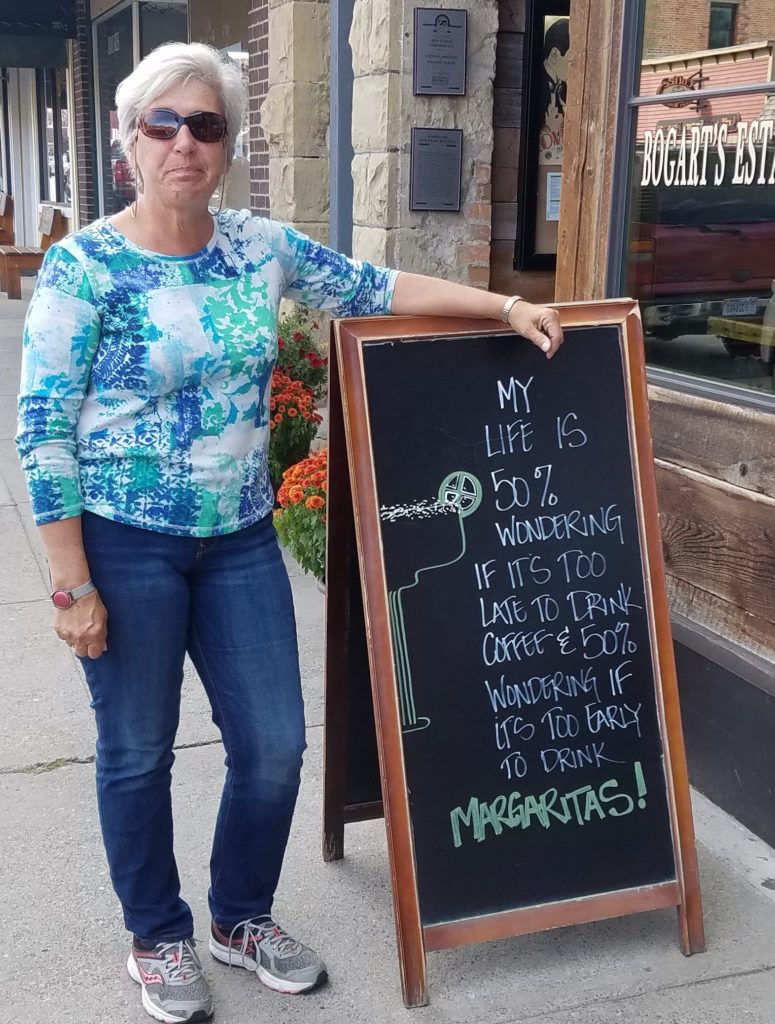 BOGART'S EST
MY
LIFE IS
50%
WONDERING
IF IT'S TOO
LATE TO DRINK
COFFEE & 50%
WONDERING IF
IT'S TOO EARLY
TO DRINK
MARGARITAS!